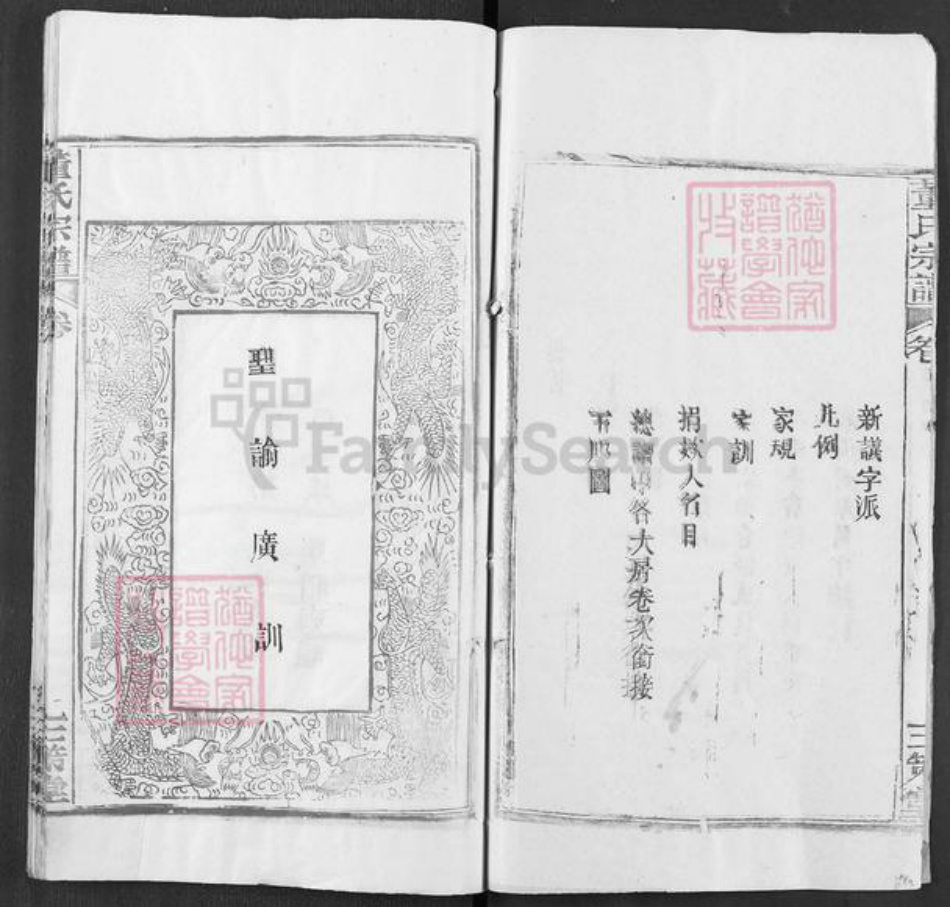 董氏宗譜
卷
三策堂
新議字派
凡例
家規
家訓
捐欵人名目
各大房卷次銜接
圖
猶他家
譜學會
收藏
聖諭廣訓
猶他家
譜學會
董氏宗譜
卷
三策堂
FamilySearch